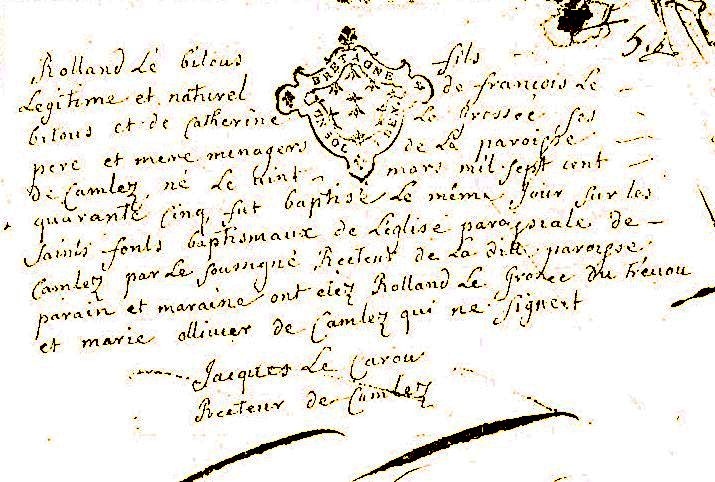 Rolland Le bilous fils
Legitime et naturel de françois Le
bilous et de Catherine Le Grossec ses
pere et mere menagers de La paroisse
De Camlez né Le vint mars mil sept cent
quarante Cinq, fut baptisé Le même Jour sur les
saints fonts baptismaux de Leglise paroissiale de
Camlez par Le soussigné Recteur de La ditte paroisse
parain et maraine ont etez Rolland Le Grozec du trévou
et marie ollivier de Camlez qui ne signent
Jacques Le Carou
Recteur de Camlez
BRETAGNE